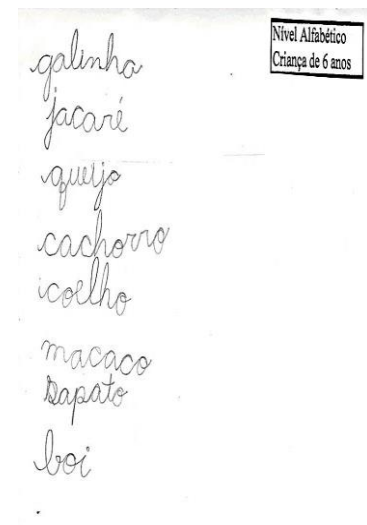 Nível Alfabético
Criança de 6 anos
galinha
jacaré
queijo
cachorro
coelho
macaco
sapato
boi